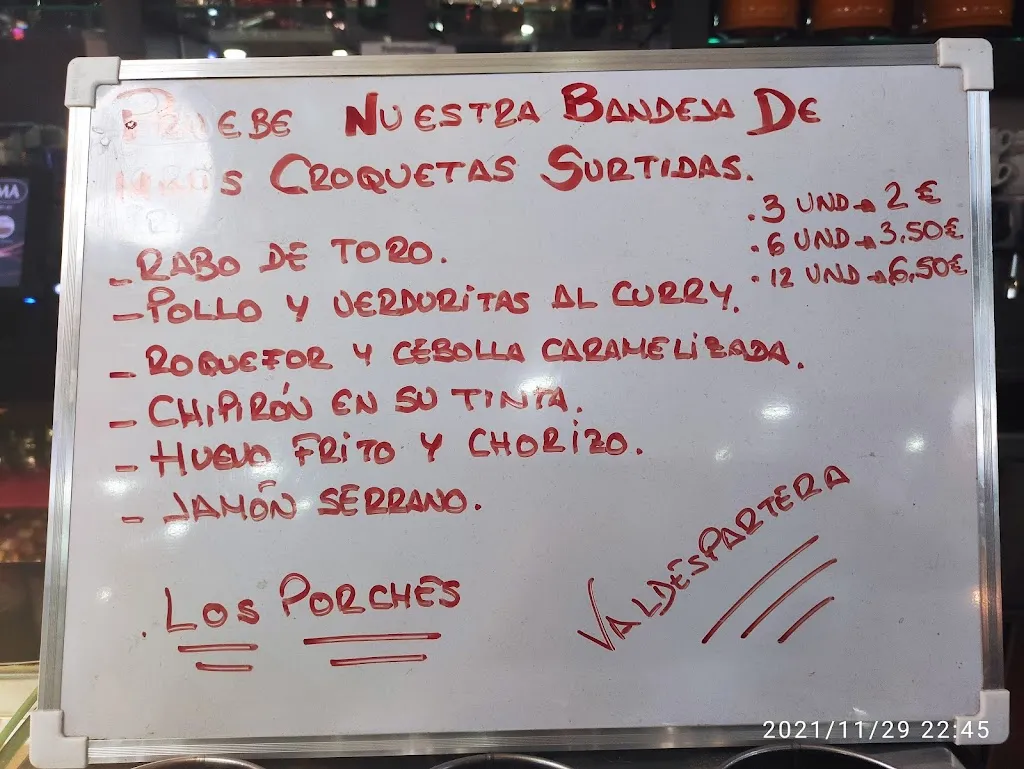 PRUEBE NUESTRA BANDEJA DE
CROQUETAS SURTIDAS.
. 3 UND → 2 €
. 6 UND → 3,50€
. 12 UND → 6,50€
- RABO DE TORO.
- POLLO Y VERDURITAS AL CURRY.
- ROQUEFOR Y CEBOLLA CARAMELIZADA.
- CHIPIRÓN EN SU TINTA.
- HUEVO FRITO Y CHORIZO.
- JAMÓN SERRANO.
VALDESPARTERA
. LOS PORCHES
2021/11/29 22:45